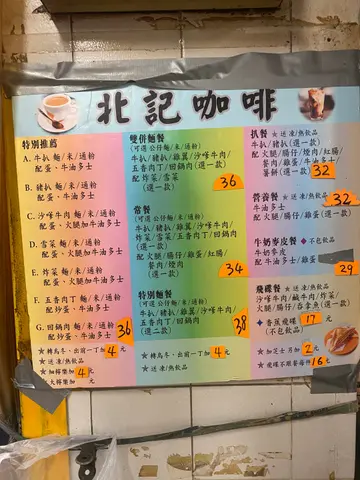 北記咖啡
特別推薦
A. 牛扒 麵/米/通粉
配蛋、牛油多士
B. 豬扒 麵/米/通粉
配蛋、牛油多士
C. 沙嗲牛肉 麵/米/通粉
配蛋、火腿加牛油多士
D. 雪菜 麵/米/通粉
配火腿加牛油多士
E. 炸菜 麵/米/通粉
配火腿加牛油多士
F. 五香肉丁 麵/米/通粉
配炒蛋、牛油多士
G. 回鍋肉 麵/米/通粉
配炒蛋、牛油多士
36
★轉烏冬、出前一丁加4元
★送凍/熱飲品
4元
雙併麵餐
(可選公仔麵/米/通粉)
牛扒/豬扒/雞翼/沙嗲牛肉/
五香肉丁/回鍋肉(選一款)
配炸菜/雪菜
(選一款)
36
常餐
(可選公仔麵/米/通粉)
牛扒/豬扒/雞翼/沙嗲牛肉/
炸菜/雪菜/五香肉丁/回鍋肉
配火腿/腸仔/雞蛋/紅腸/
餐肉/燒肉
(選一款)
34
特別麵餐
(可選公仔麵/米/通粉)
牛扒/豬扒/雞翼/沙嗲牛肉/
五香肉丁/回鍋肉
(選二款)
38
★轉烏冬、出前一丁加4元
★送凍/熱飲品
扒餐 ★送凍/熱飲品
牛扒/豬扒(選一款)
配火腿/腸仔/燒肉/紅腸/
餐肉/雞蛋/牛油多士/
薯餅(選一款)
32
營養餐 ★送凍/熱飲品
32
牛油多士
配火腿/腸仔/雞蛋(選一款)
牛奶麥皮餐 ◆不包飲品
牛奶麥皮
配牛油多士/雞蛋
29
飛碟餐 ★送凍/熱飲品
沙嗲牛肉/鹹牛肉/炸菜/
火腿/腸仔/吞拿魚(選一款)
◆香蕉飛碟17元
(不包飲品)
★加芝士另加2元
16元